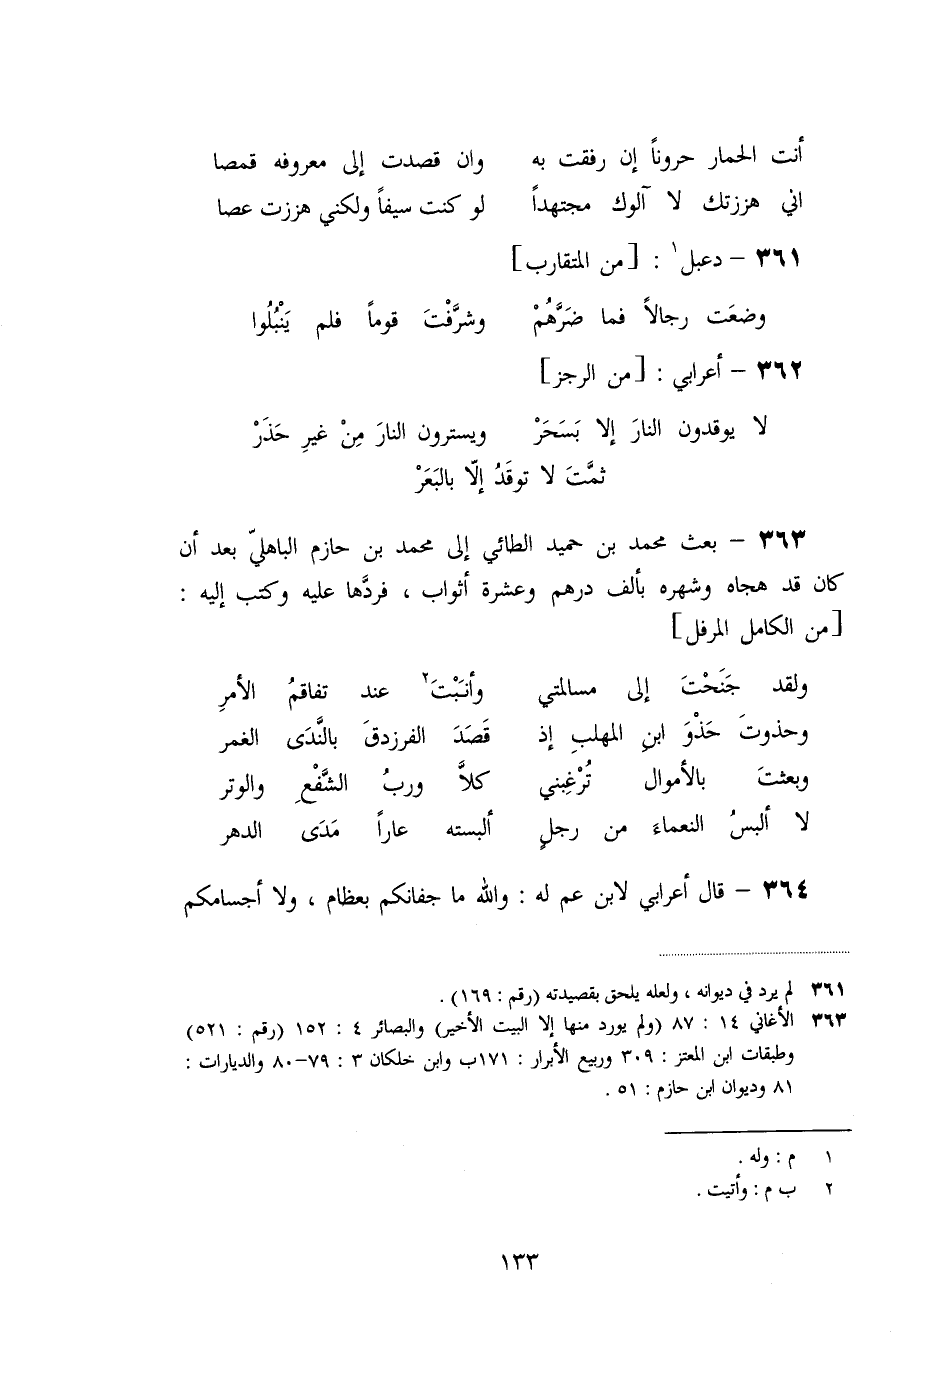 أنت الحمار حروناً إن رفقت به وان قصدت إلى معروفه قمصا
اني هززتك لا آلوك مجتهداً لو كنت سيفاً ولكني هززت عصا
٣٦١ – دعبل١ : [من المتقارب]
وضعَت رجالاً فما ضَرَّهُمْ وشرَّفْتَ قوماً فلم يَنْبُلُوا
٣٦٢ – أعرابي : [من الرجز]
لا يوقدون النارَ إلا بَسَحَرْ ويسترون النارَ مِنْ غيرِ حَذَرْ
ثمَّتَ لا توقَدُ إلّا بالبَعَرْ
٣٦٣ – بعث محمد بن حميد الطائي إلى محمد بن حازم الباهليّ بعد أن
كان قد هجاه وشهره بألف درهم وعشرة أثواب ، فردَّها عليه وكتب إليه :
[من الكامل المرفل]
ولقد جَنَحْتَ إلى مسالمتي وأنَبْتَ٢ عند تفاقمُ الأمرِ
وحذوتَ حَذْوَ ابنِ المهلبِ إذ قَصَدَ الفرزدقَ بالنَّدَى الغمر
وبعثتَ بالأموال تُرْغِبني كلاَّ وربُ الشَّفْعِ والوتر
لا ألبسُ النعماءَ من رجلٍ ألبسته عاراً مَدَى الدهر
٣٦٤ – قال أعرابي لابن عم له : والله ما جفانكم بعظام ، ولا أجسامكم
٣٦١ لم يرد في ديوانه ، ولعله يلحق بقصيدته (رقم : ١٦٩) .
٣٦٣ الأغاني ١٤ : ٨٧ (ولم يورد منها إلا البيت الأخير) والبصائر ٤ : ١٥٢ (رقم : ٥٢١)
وطبقات ابن المعتز : ٣٠٩ وربيع الأبرار : ١٧١ب وابن خلكان ٣ : ٧٩–٨٠ والديارات :
٨١ وديوان ابن حازم : ٥١ .
١ م : وله .
٢ ب م : وأتيت .
١٣٣